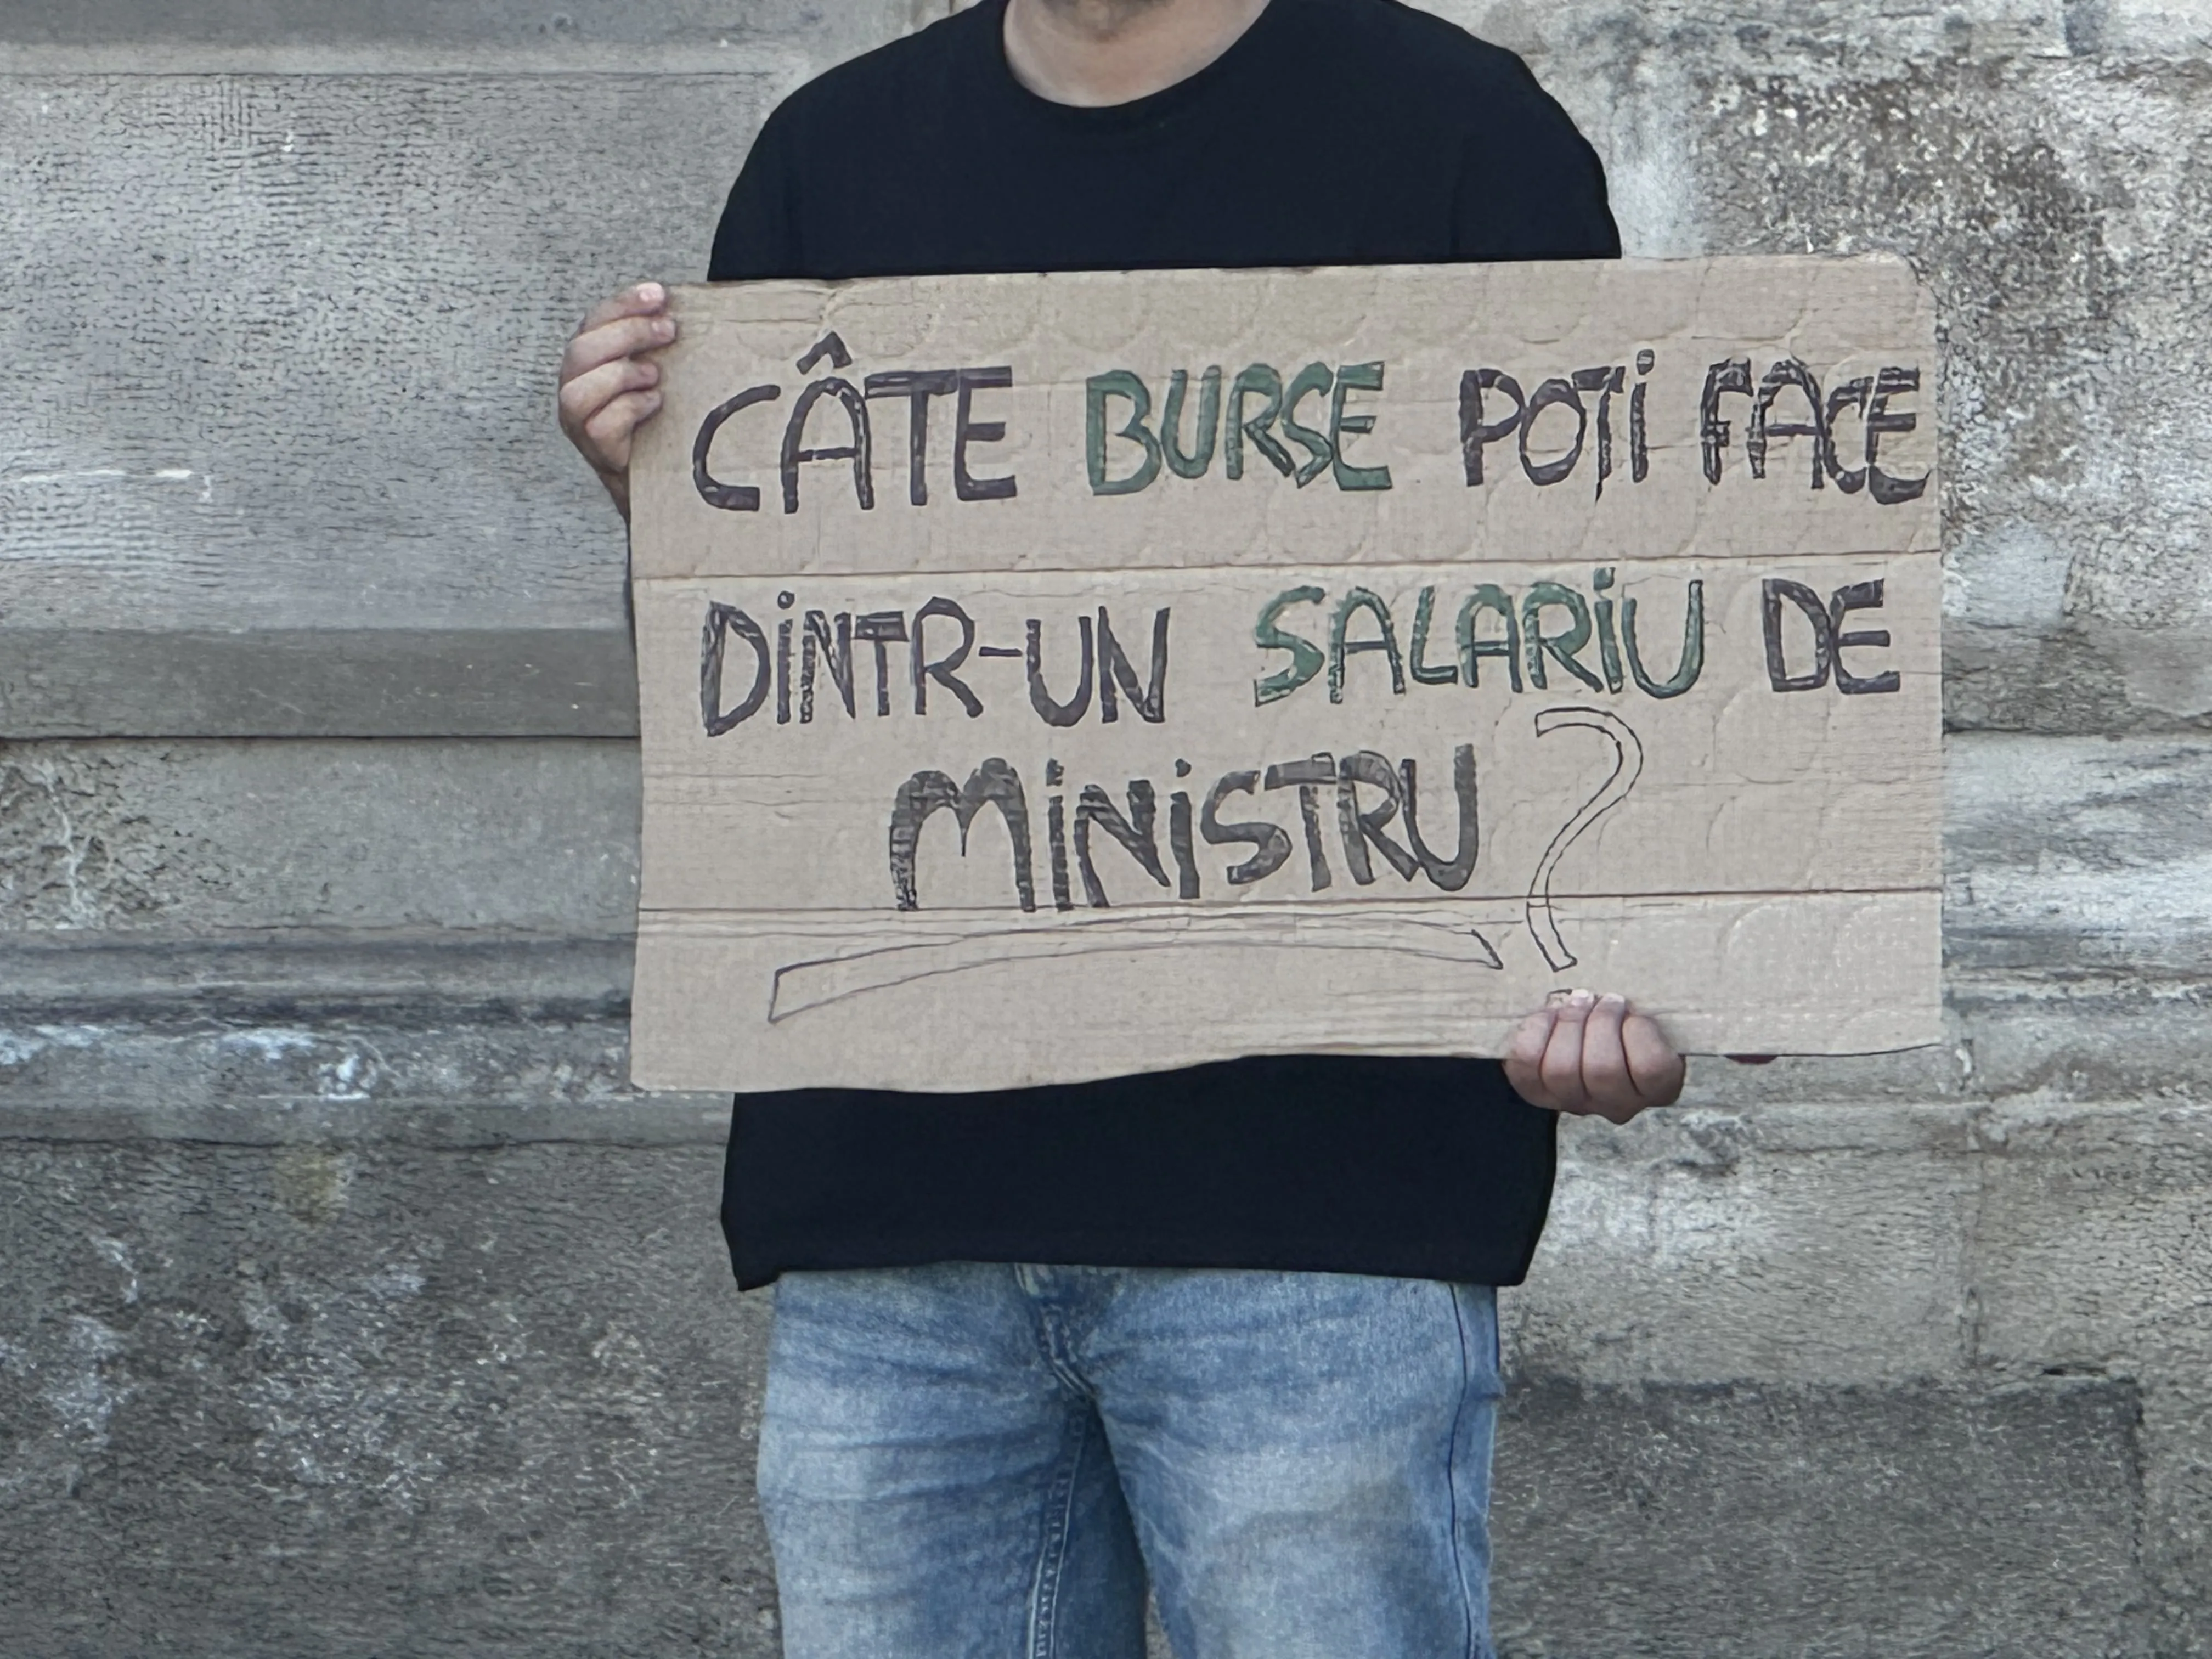 CÂTE BURSE POȚI FACE
DINTR-UN SALARIU DE
MINISTRU?